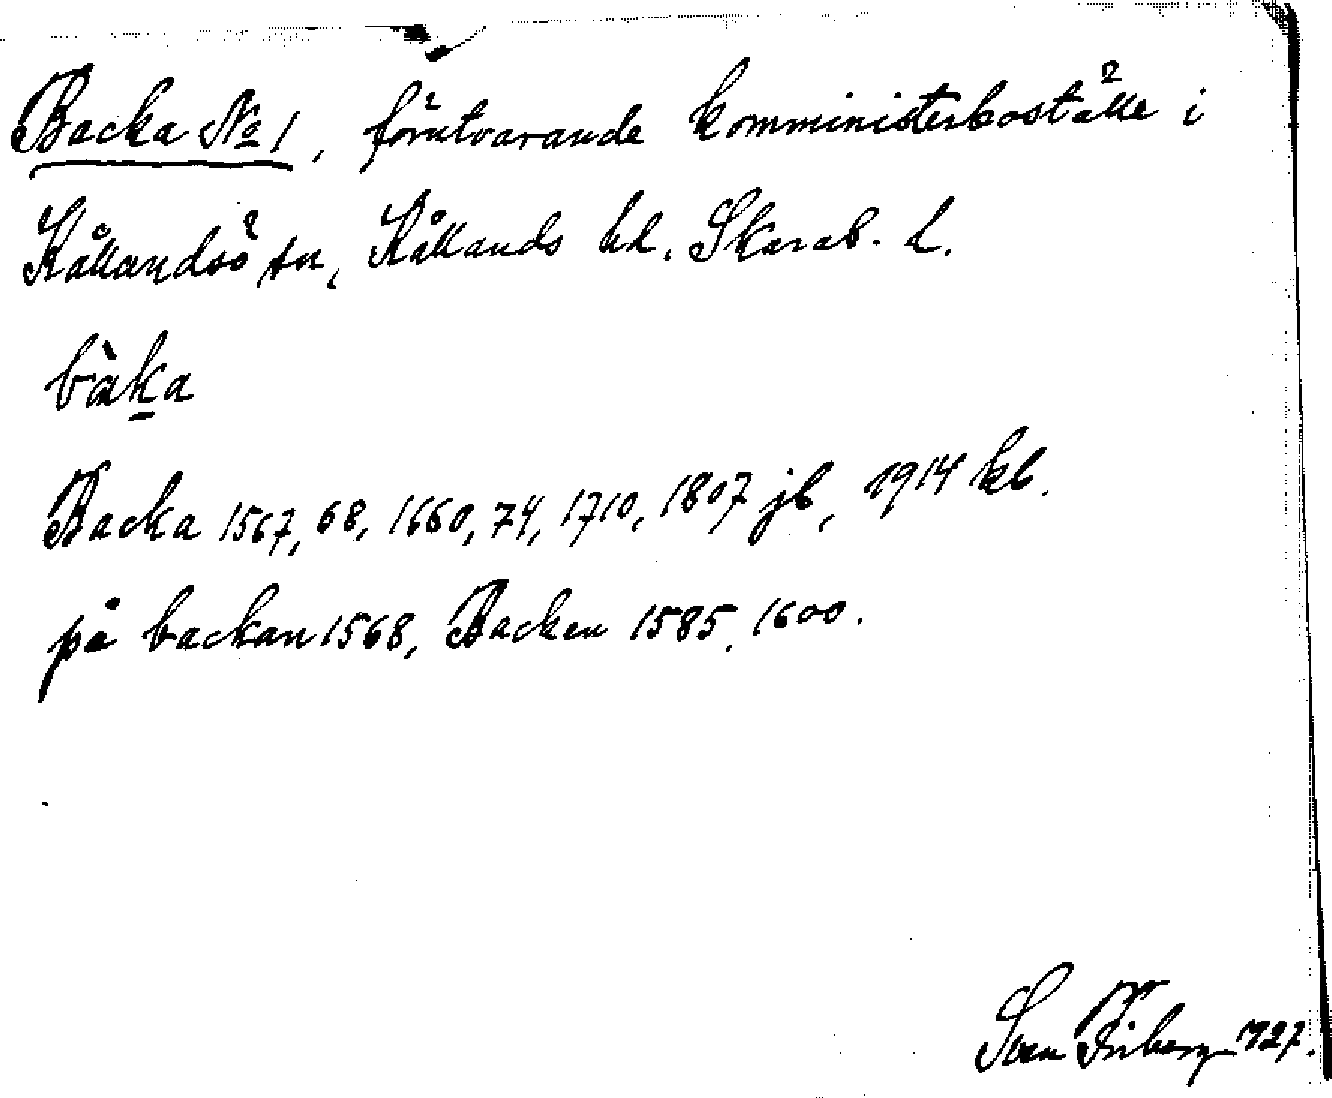 Backa No 1, förutvarande komministerboställe i
Kållandsö sn, Kållands hd. Skarab. l.
bàka
Backa 1567, 68, 1660, 74, 1710, 1807 jb, 1914 kb.
på backan 1568, Backen 1585, 1600.
Sven Friberg 1927.